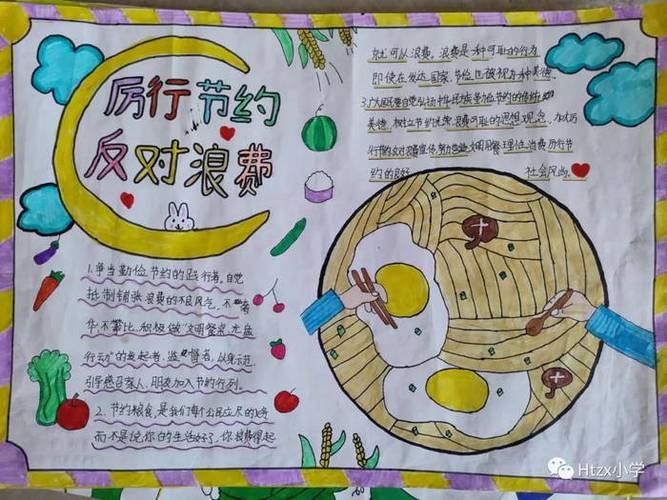 厉行节约
反对浪费
1.争当勤俭节约的践行者。自觉
抵制铺张浪费的不良风气，不奢
华，不攀比，积极做“文明餐桌，光盘
行动”的发起者，监督者，以身示范
引导感召家人、朋友加入节约行列。
2、节约粮食，是我们每个公民应尽的义务
而不是说，你的生活好了，你浪费得起
就可以浪费，浪费是一种可耻的行为
即使在发达国家，节俭也被视为种美德。
3.广大居民要自觉弘扬中华民族勤俭节约的传统
美德，树立节约光荣，浪费可耻的思想观念，
行节约反对浪费宣传，努力营造文明用餐理性消费厉行节
约的良好 社会风尚。
Htzx小学